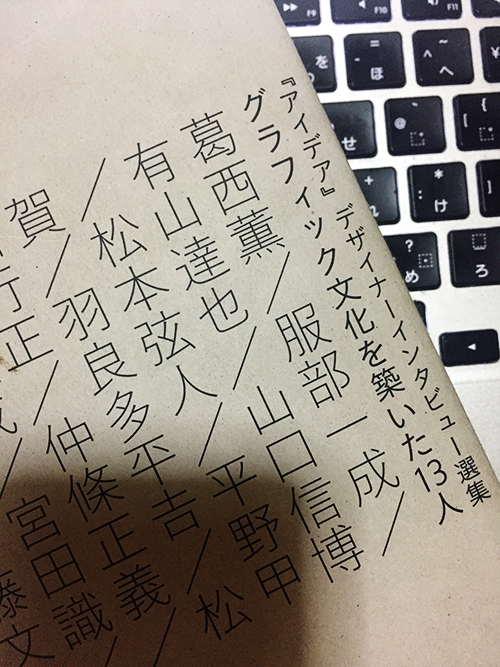 『アイデア』デザイナーインタビュー選集
グラフィック文化を築いた13人
葛西薫／服部一成／
有山達也／山口信博
／松本弦人／平野甲
賀／羽良多平吉／松
行正／仲條正義／
／宮田識／
藤文
F10
F11
を
= ほ
^ ~ へ
¥
せ
@
+ れ
* け
? め
ろ